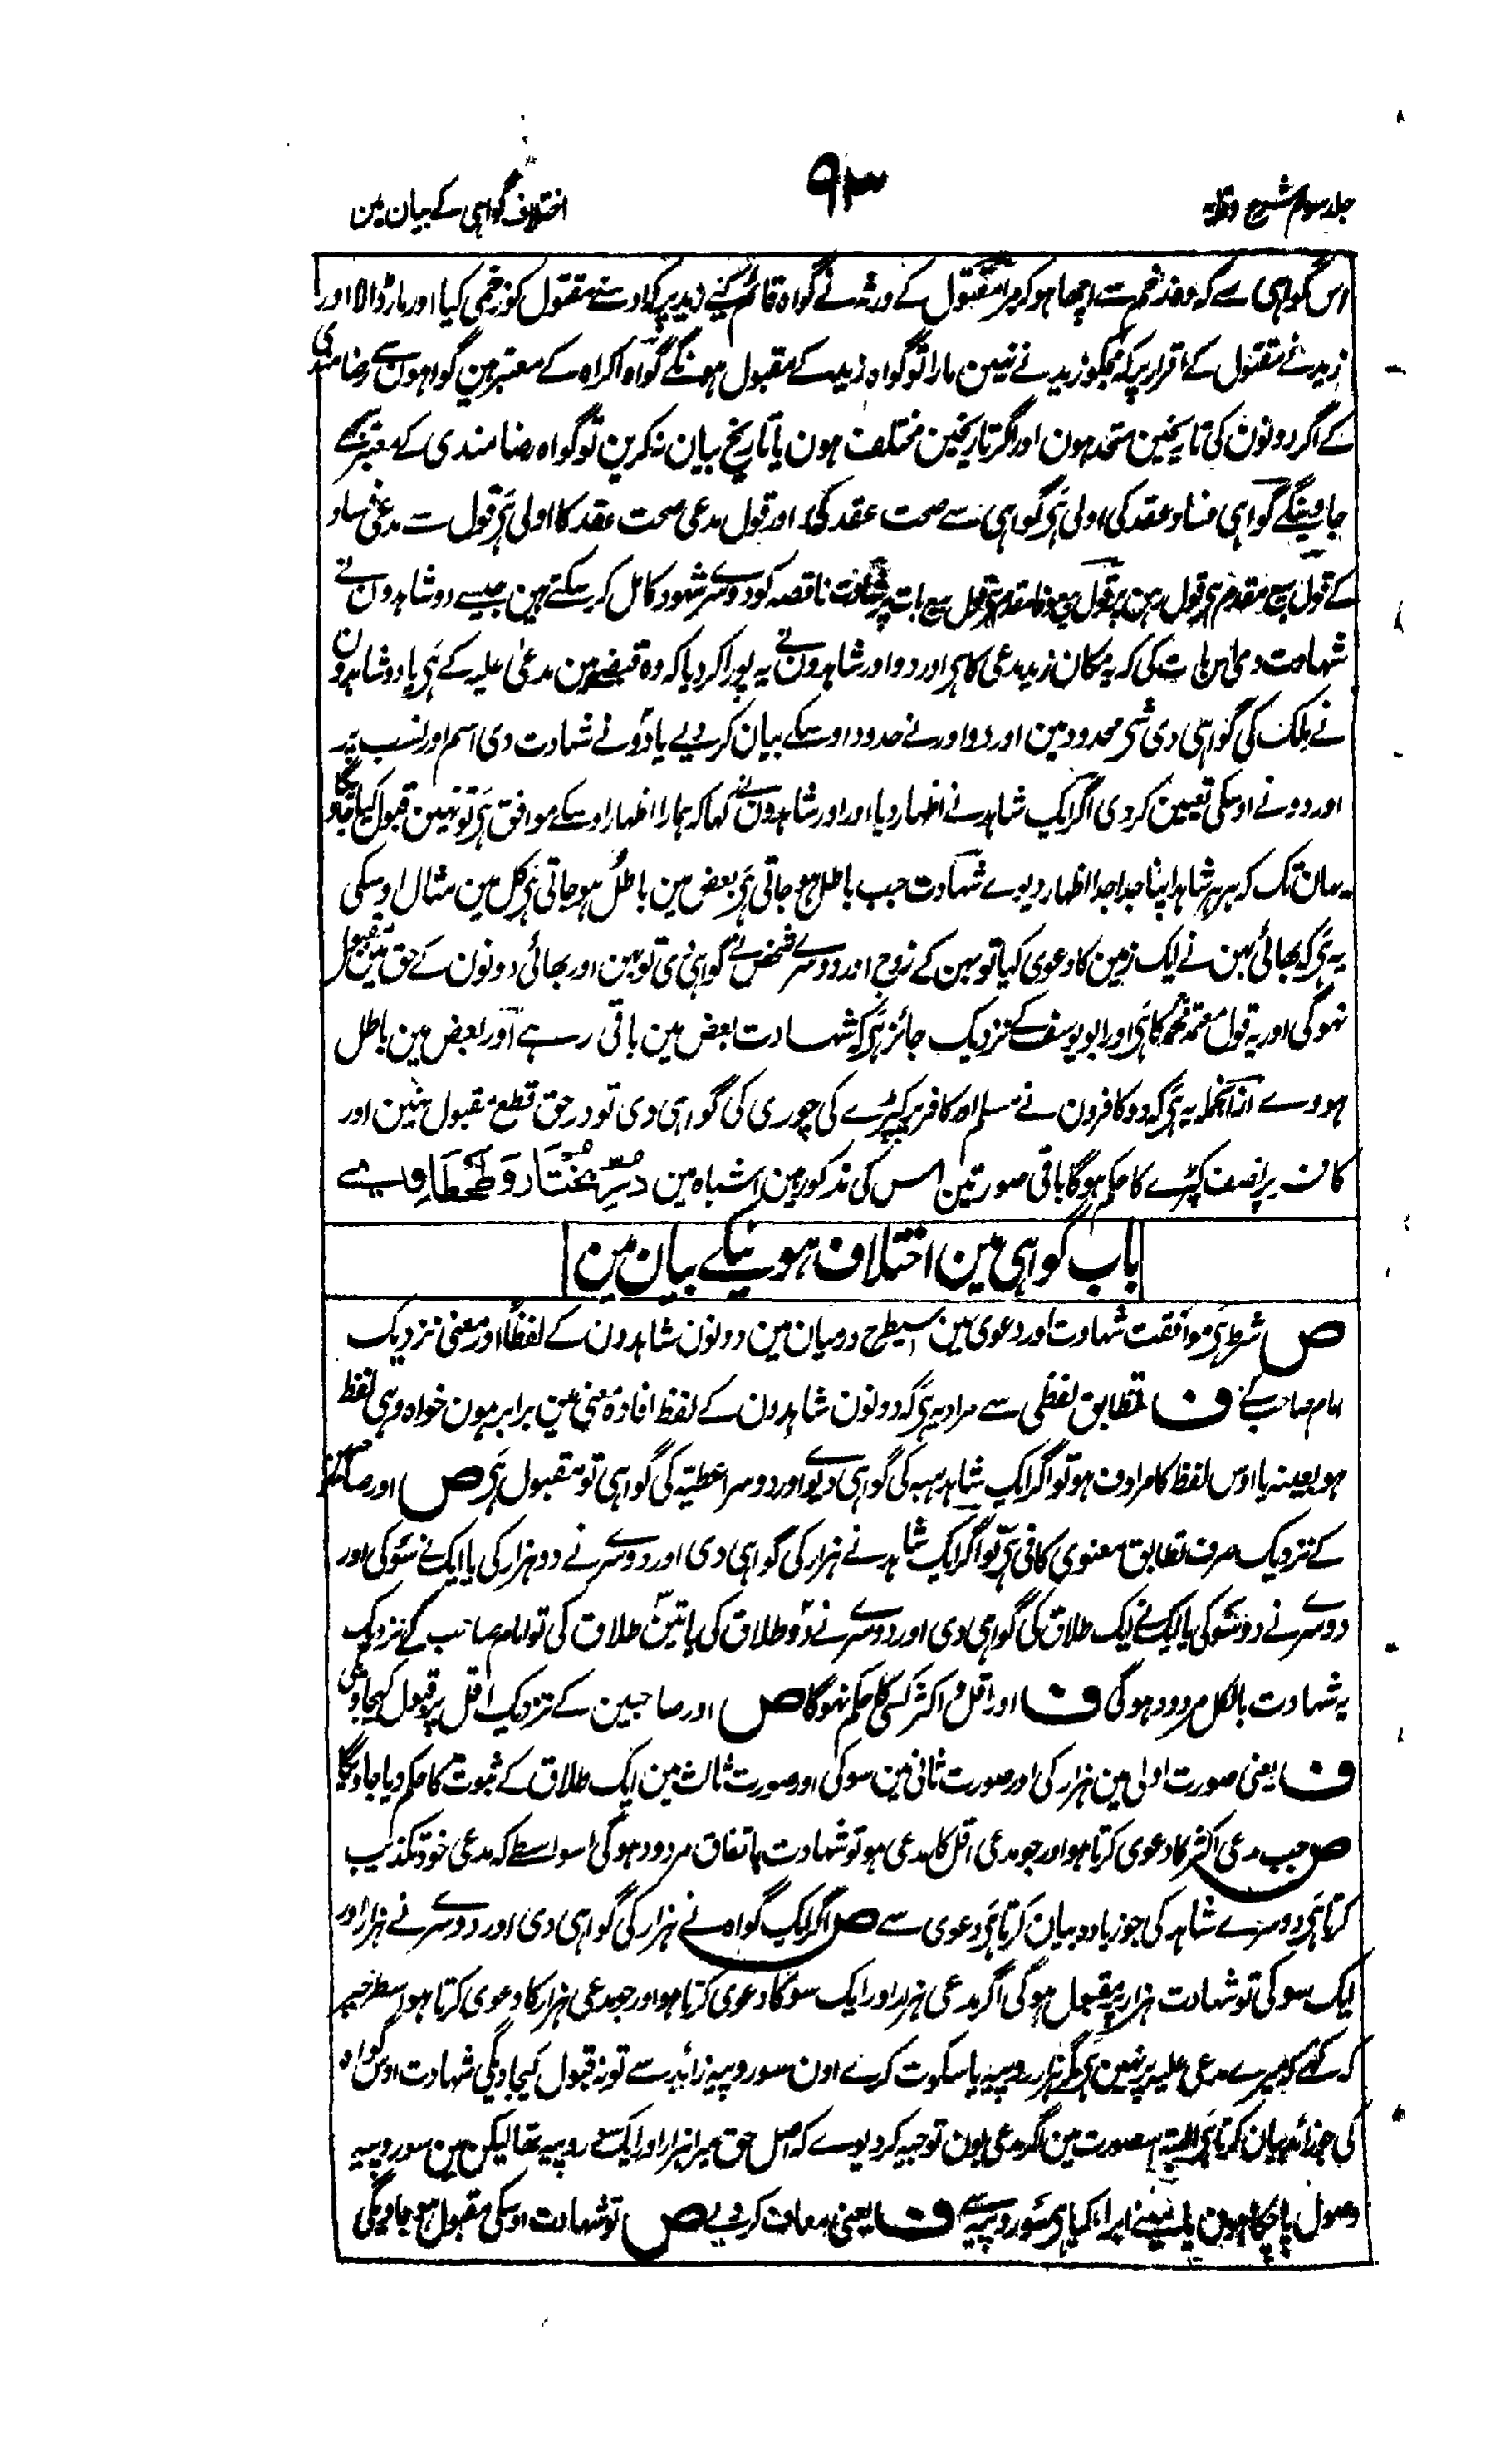 جلد سوم شرح وقایہ
۹۳
اختلاف گواہی کے بیان مین
اس گواہی سے کہ وہ زخم سے اچھا ہو کر مرا مقتول کے ورثہ نے گواہ قائم کیے زید پر کہ اوسنے مقتول کو زخمی کیا اور مار ڈالا اور
زید نے مقتول کے اقرار پر کہ مجکو زید نے نہین مارا تو گواہ زید کے مقبول ہونگے گواہ اکراہ کے معتبر ہین گواہون سے رضا مندی
کے اگر دونون کی تاریخین متحد ہون اور اگر تاریخین مختلف ہون یا تاریخ بیان نہ کرین تو گواہ رضا مندی کے معتبر سمجھے
جاوینگے گواہی فساد عقد کی اولی ہی گواہی سے صحت عقد کی اور قول مدعی صحت عقد کا اولی ہی قول سے مدعی فساد
کے قول بیع مقدم ہی قول رہن پر قول بیع وفا مقدم ہی قول بیع بات پر شہادت ناقصہ کو دوسرے شہود کامل کر سکتے ہین جیسے دو شاہدون نے
شہادت دی اس بات کی کہ یہ مکان زید مدعی کا ہی اور دو اور شاہدون نے یہ پورا کر دیا کہ وہ قبضے مین مدعی علیہ کے ہی یا دو شاہدون
نے ملک کی گواہی دی شی محدود مین اور دو اور نے حدود اوسکے بیان کر دیے یا دو نے شہادت دی اسم اور نسب پر
اور دو نے اوسکی تعیین کر دی اگر ایک شاہد نے اظہار دیا اور اور شاہدون نے کہا کہ ہمارا اظہار اوسکے موافق ہی تو نہین قبول کیا جاویگا
یہان تک کہ ہر ہر شاہد اپنا جدا جدا اظہار دیوے شہادت جب باطل ہو جاتی ہی بعض مین باطل ہو جاتی ہی کل مین مثال اوسکی
یہ ہی کہ بھائی بہن نے ایک زمین کا دعوی کیا تو بہن کے زوج اور دوسرے شخص نے گواہی دی تو بہن اور بھائی دونون کے حق مین مقبول
نہوگی اور یہ قول معتمد محمد کا ہی اور ابو یوسف کے نزدیک جائز ہی کہ شہادت بعض مین باقی رہے اور بعض مین باطل
ہووے ازانجملہ یہ ہی کہ دو کافرون نے مسلم اور کافر پر کپڑے کی چوری کی گواہی دی تو در حق قطع مقبول نہین اور
کافر پر نصف کپڑے کا حکم ہوگا باقی صورتین اس کی مذکور ہین اشباہ مین در مختار و طحطاوی
باب گواہی مین اختلاف ہونیکے بیان مین
ص شرط ہی موافقت شہادت اور دعوی مین اسیطرح درمیان مین دونون شاہدون کے لفظا اور معنی نزدیک
امام صاحب کے ف تطابق لفظی سے مراد یہ ہی کہ دونون شاہدون کے لفظ افادہ معنی مین برابر ہون خواہ وہی لفظ
ہو بعینہ یا اوس لفظ کا مرادف ہو تو اگر ایک شاہد ہبہ کی گواہی دیوے اور دوسرا عطیہ کی گواہی تو مقبول ہی ص اور صاحبین
کے نزدیک صرف تطابق معنوی کافی ہی تو اگر ایک شاہد نے ہزار کی گواہی دی اور دوسرے نے دو ہزار کی یا ایک نے سو کی اور
دوسرے نے دو سو کی یا ایک نے ایک طلاق کی گواہی دی اور دوسرے نے دو طلاق کی یا تین طلاق کی تو امام صاحب کے نزدیک
یہ شہادت بالکل مردود ہوگی ف اور اقل و اکثر کسی کا حکم نہوگا ص اور صاحبین کے نزدیک اقل پر قبول کیجاویگی
ف یعنی صورت اولی مین ہزار کی اور صورت ثانی مین سو کی اور صورت ثالث مین ایک طلاق کے ثبوت کا حکم دیا جاویگا
ص جب مدعی اکثر کا دعوی کرتا ہو اور جو مدعی اقل کا مدعی ہو تو شہادت باتفاق مردود ہوگی اسواسطے کہ مدعی خود تکذیب
کرتا ہی دوسرے شاہد کی جو زیادہ بیان کرتا ہی دعوی سے ص اگر ایک گواہ نے ہزار کی گواہی دی اور دوسرے نے ہزار اور
ایک سو کی تو شہادت ہزار پر مقبول ہوگی اگر مدعی ہزار اور ایک سو کا دعوی کرتا ہو اور جو مدعی ہزار کا دعوی کرتا ہو اسطرحپر
کہ کہے کہ میرے مدعی علیہ پر نہین ہی مگر ہزار روپیہ یا سکوت کرے اون سو روپیہ زائد سے تو نہ قبول کیجاویگی شہادت اوس گواہ
کی جو زائد بیان کرتا ہی البتہ اسصورت مین اگر مدعی یون توجیہ کر دیوے کہ اصل حق میرا ہزار اور ایک سو روپیہ تھا لیکن مین سو روپیہ
وصول پا چکا ہون یا مینے ابرا کیا ہی سو روپیہ سے ف یعنی معاف کر دیے ص تو شہادت اوسکی مقبول ہو جاویگی